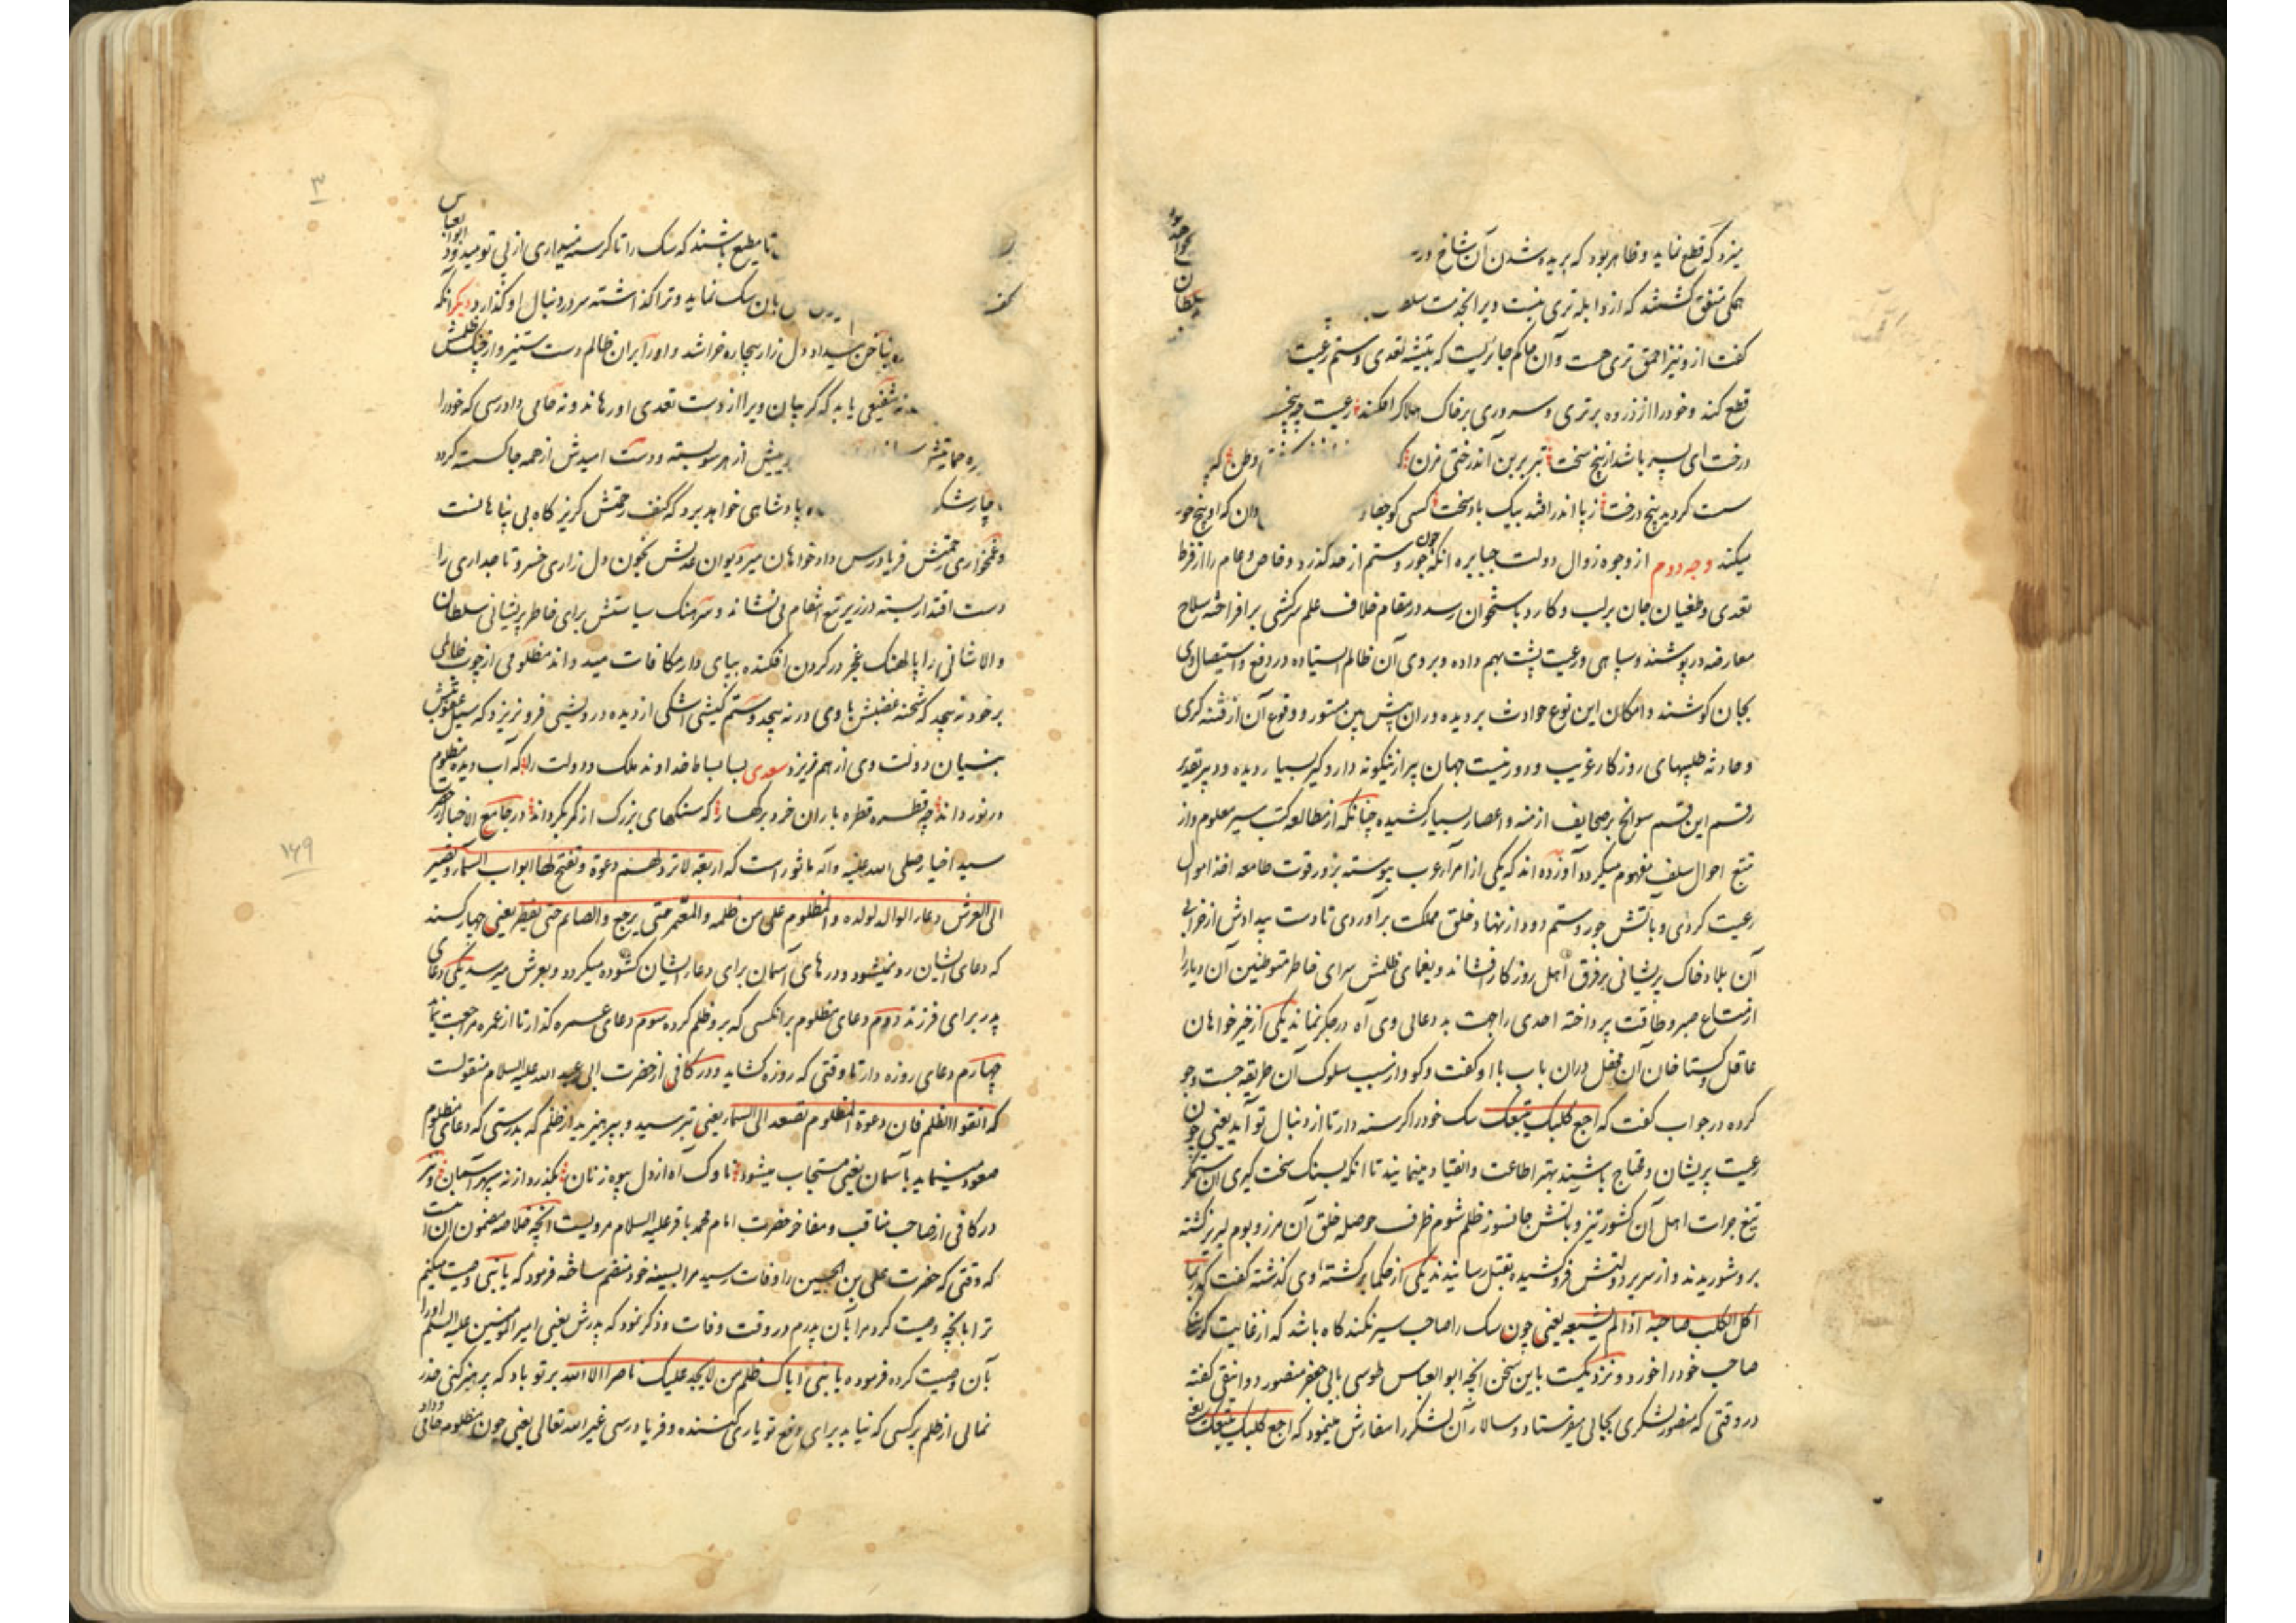 میزد که قطع نماید و ظاهر بود که بریده شدن آن شاخ
همکی متفق گشتند که از و ابله تری نیست ویرا بخدمت
گفت از و نیز احمق تری هست و آن حاکم جائریست که به تیشه تعدی و ستم رعیت
قطع کند و خود را از ذروه برتری و سروری بر خاک هلاک افکند رعیت چو بیخ
درخت ای پسر باشد از بیخ سخت تبر بر بن آن درختی مزن که
سست گردید بیخ درخت ز پا اندر افتد بیک باد سخت کسی کو جفا
میکند وجه دوم از وجوه زوال دولت جبابره آنکه چون جور و ستم از حد گذرد و خاص و عام را از فرط
تعدی و طغیان جان بر لب و کارد باستخوان رسد در مقام خلاف علم سرکشی برافراخته سلاح
معارضه در پوشند و سپاهی و رعیت پشت بهم داده و بروی آن ظالم ایستاده در دفع و استیصال وی
بجان کوشند و امکان این نوع حوادث بر دیده وران پیش بین مستور و وقوع آن از فتنه گری
و حادثه طلبیهای روزگار غریب و دور نیست جهان پیر ازینگونه دار و گیر بسیار دیده و دبیر تقدیر
رقم این قسم سوانح بر صحایف ازمنه و اعصار بسیار کشیده چنانکه از مطالعه کتب سیر معلوم و از
تتبع احوال سلف مفهوم میگردد آورده اند که یکی از امرآء عرب پیوسته بزور قوت طامعه اخذ اموال
رعیت کردی و بآتش جور و ستم دود از نهاد خلق مملکت برآوردی تا دست بیدادش از خرابی
آن بلاد خاک پریشانی بر فرق اهل روزگار افشاند و یغمای ظلمش سرای خاطر متوطنین آن دیار را
از متاع صبر و طاقت پرداخته احدی را جهت بد دعائی وی آه در جگر نماند یکی از خیرخواهان
عاقل و گستاخان آن محفل در آن باب با او گفت و گو و از سبب سلوک آن طریقه جست و جو
کرده در جواب گفت که اجع کلبک یتبعک سک خود را گرسنه دار تا از دنبال تو آید یعنی چون
رعیت پریشان و محتاج باشند بهتر اطاعت و انقیاد مینمایند تا آنکه بسنک سخت گیری آن ستمگر
تیغ جرات اهل آن کشور تیز و بآتش جانسوز ظلم شوم ظرف حوصله خلق آن مرز و بوم لبریز گشته
بر و شوریدند و از سریر دولتش فرو کشیده بقتل رسانیدند یکی از حکما بر کشته وی گذشته گفت که ربما
اکل الکلب صاحبه اذا لم یشبعه یعنی چون سک را صاحب سیر نکند گاه باشد که از غایت گرسنگی
صاحب خود را خورد و نزدیکست باین سخن آنچه ابو العباس طوسی بابی جعفر منصور دوانیقی گفته
در وقتی که منصور لشکری بجائی میفرستاد و سالار آن لشکر را سفارش مینمود که اجع کلبک یتبعک
ابو العباس
تا مطیع باشند که سک را تا گرسنه میداری از پی تو میدود
بان سک نماید و ترا گذاشته سر در دنبال او گذارد دیگر آنکه
بناخن بیداد دل زار بیچاره خراشد و او را بر آن ظالم دست ستیز و از چنگ ظلمش
شفیعی یابد که گریبان ویرا از دست تعدی او رهاند و نه حامی و دادرسی که خود را
از هر سو بسته و دست امیدش از همه جا گسسته گردد
پادشاهی خواهد برد که کنف رحمتش گریزگاه بی پناهانست
و غمخواری رحمتش فریادرس دادخواهان میر دیوان عدلش بخون دل زاری خسرو تاجداری را
دست اقتدار بسته در زیر تیغ انتقام می نشاند و سرهنک سیاستش برای خاطر پریشانی سلطان
والا شانی را پالهنک عجز در گردن افکنده بپای دار مکافات میدواند مظلومی از چوب ظالمی
بر خود نه پیچد که شحنه غضبش با وی در نه پیچد و ستم کیشی اشکی از دیده درویشی فرو نریزد که سیل عقوبتش
بنیان دولت وی از هم نریزد سعدی بسا بساط خداوند ملک و دولت را که آب دیده مظلوم
در نوردانید چه قطره قطره باران خرد بر کهسار که سنکهای بزرک از کمر بگرداند در جامع الاخبار از حضرت
سید اخیار صلی الله علیه و آله ماثور است که اربعة لا ترد لهم دعوة و تفتح لها ابواب السمآء و تصیر
الی العرش دعاء الوالد لولده و المظلوم علی من ظلمه و المعتمر حتی یرجع و الصائم حتی یفطر یعنی چهار کسند
که دعای ایشان رد نمیشود و درهای آسمان برای دعاء ایشان گشوده میگردد و بعرش میرسد یکی دعای
پدر برای فرزند دوم دعای مظلوم بر آنکسی که برو ظلم کرده سوم دعای عمره گذار تا از عمره مراجعت نماید
چهارم دعای روزه دار تا وقتی که روزه گشاید و در کافی از حضرت ابی عبد الله علیه السلام منقولست
که اتقوا الظلم فان دعوة المظلوم تصعد الی السماء یعنی بترسید و بپرهیزید از ظلم که بدرستی که دعای مظلوم
صعود مینماید بآسمان یعنی مستجاب میشود ناوک آه از دل بیوه زنان بگذرد از نه سپر آسمان و نیز
در کافی از صاحب مناقب و مفاخر حضرت امام محمد باقر علیه السلام مرویست آنچه خلاصه مضمون آن است
که وقتی که حضرت علی بن الحسین را وفات رسید مرا بسینه خود منضم ساخته فرمود که یا بنی وصیت میکنم
ترا بآنچه وصیت کرد مرا بآن پدرم در وقت وفات و ذکر نمود که پدرش یعنی امیر المؤمنین علیه السلم او را
بآن وصیت کرده فرموده یا بنی ایاک و ظلم من لا یجد علیک ناصرا الا الله بر تو باد که پرهیز کنی و حذر
نمائی از ظلم بر کسی که نیابد برای دفع تو یاری کننده و فریادرسی غیر الله تعالی یعنی چون مظلوم حامی
۱۶۹